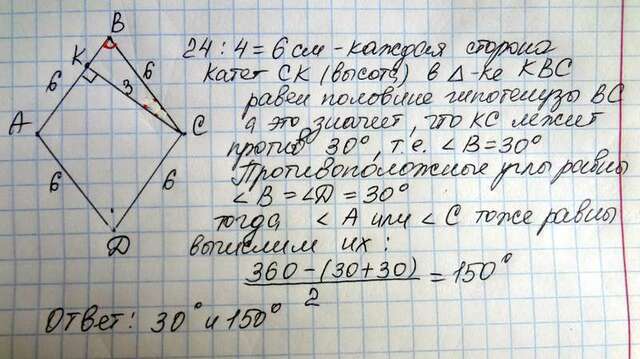 B
K
6
3
6
A
C
6
6
D
24 : 4 = 6 см - каждая сторона
Катет СК (высота) в Δ-ке КВС
равен половине гипотенузы ВС
а это значит, что КС лежит
против 30°, т.е. ∠B = 30°
Противоположные углы равны
∠B = ∠D = 30°
тогда ∠A или ∠C тоже равны
вычислим их:
360 - (30 + 30)
2
= 150°
Ответ: 30° и 150°